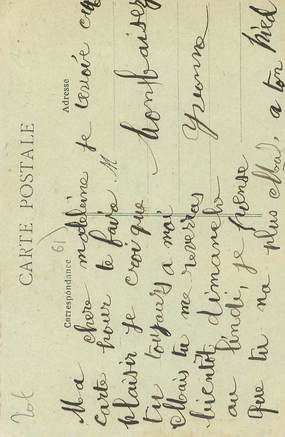 CARTE POSTALE
Correspondance
61
Adresse
Ma chere madeleine je tenvoie
carte pour te faire
plaisir je croi que
tu toujours a moi
Mais tu me reverras
bientot dimanche
ou lindi, je pense
que tu na plus Mal, a ton pied
bonbaiser
Yvonne